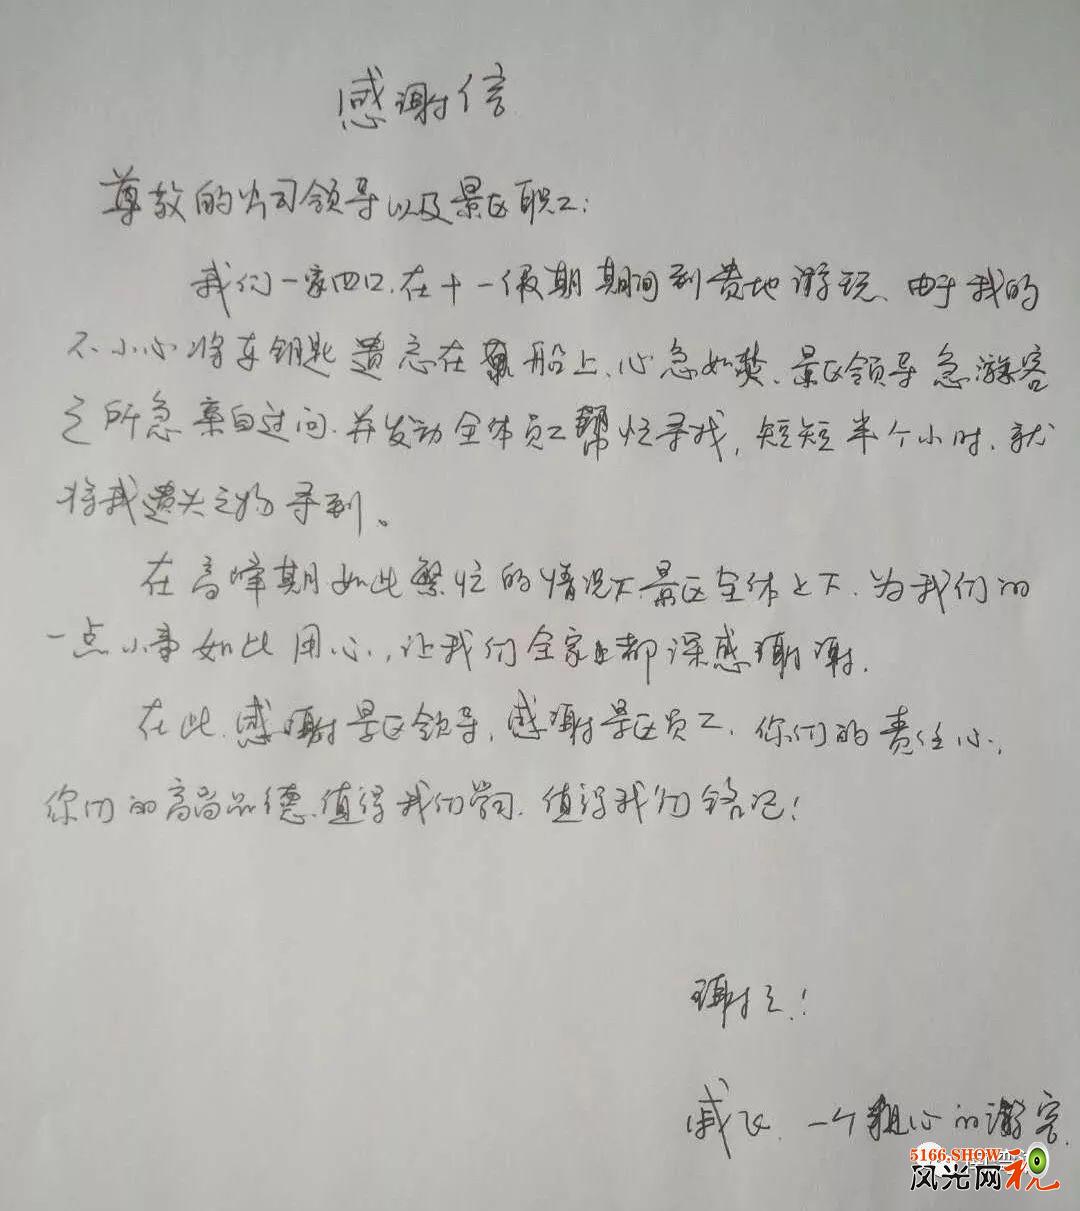 感谢信
尊敬的公司领导以及景区职工:
我们一家四口.在十一假期期间到贵地游玩、由于我的
不小心将车钥匙遗忘在船上、心急如焚、景区领导急游客
之所急亲自过问.并发动全体员工帮忙寻找,短短半个小时.就
将我遗失之物寻到。
在高峰期如此繁忙的情况下.景区全体上下.为我们的
一点小事如此用心,让我们全家都深感谢谢.
在此.感谢景区领导,感谢景区员工.你们的责任心,
你们的高尚品德.值得我们学习.值得我们铭记!
谢谢!
戚飞.一个粗心的游客.
5166.SHOW
风光网视